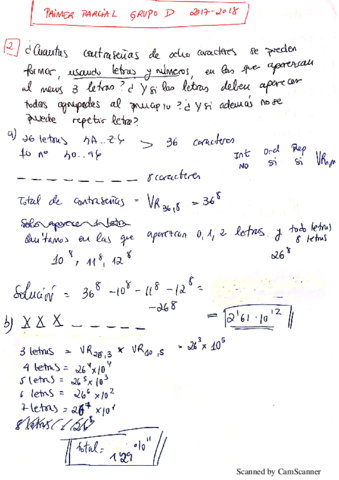 PRIMER PARCIAL GRUPO D 2017-2018
2. ¿Cuantas contraseñas de ocho caracteres se pueden
formar, usando letras y números, en las que aparezcan
al menos 3 letras? ¿Y si las letras deben aparecer
todas agrupadas al principio? ¿Y si además no se
puede repetir letra?
a) 26 letras {A...Z} > 36 caracteres
10 nº {0..9}
Int Ord Rep
NO SI SI
_ _ _ _ _ _ _ _ 8 caracteres
Total de contraseñas = VR36,8 = 36^8
Quitamos en las que aparezcan 0, 1, 2 letras y todo letras
8 letras
10^8, 11^8, 12^8 26^8
Solución = 36^8 - 10^8 - 11^8 - 12^8 =
- 26^8
= 2'61 · 10^12
b) X X X _ _ _ _ _
3 letras = VR26,3 * VR10,5 = 26^3 x 10^5
4 letras = 26^4 x 10^4
5 letras = 26^5 x 10^3
6 letras = 26^6 x 10^2
7 letras = 26^7 x 10^1
total = 1'29 · 10^11
Scanned by CamScanner